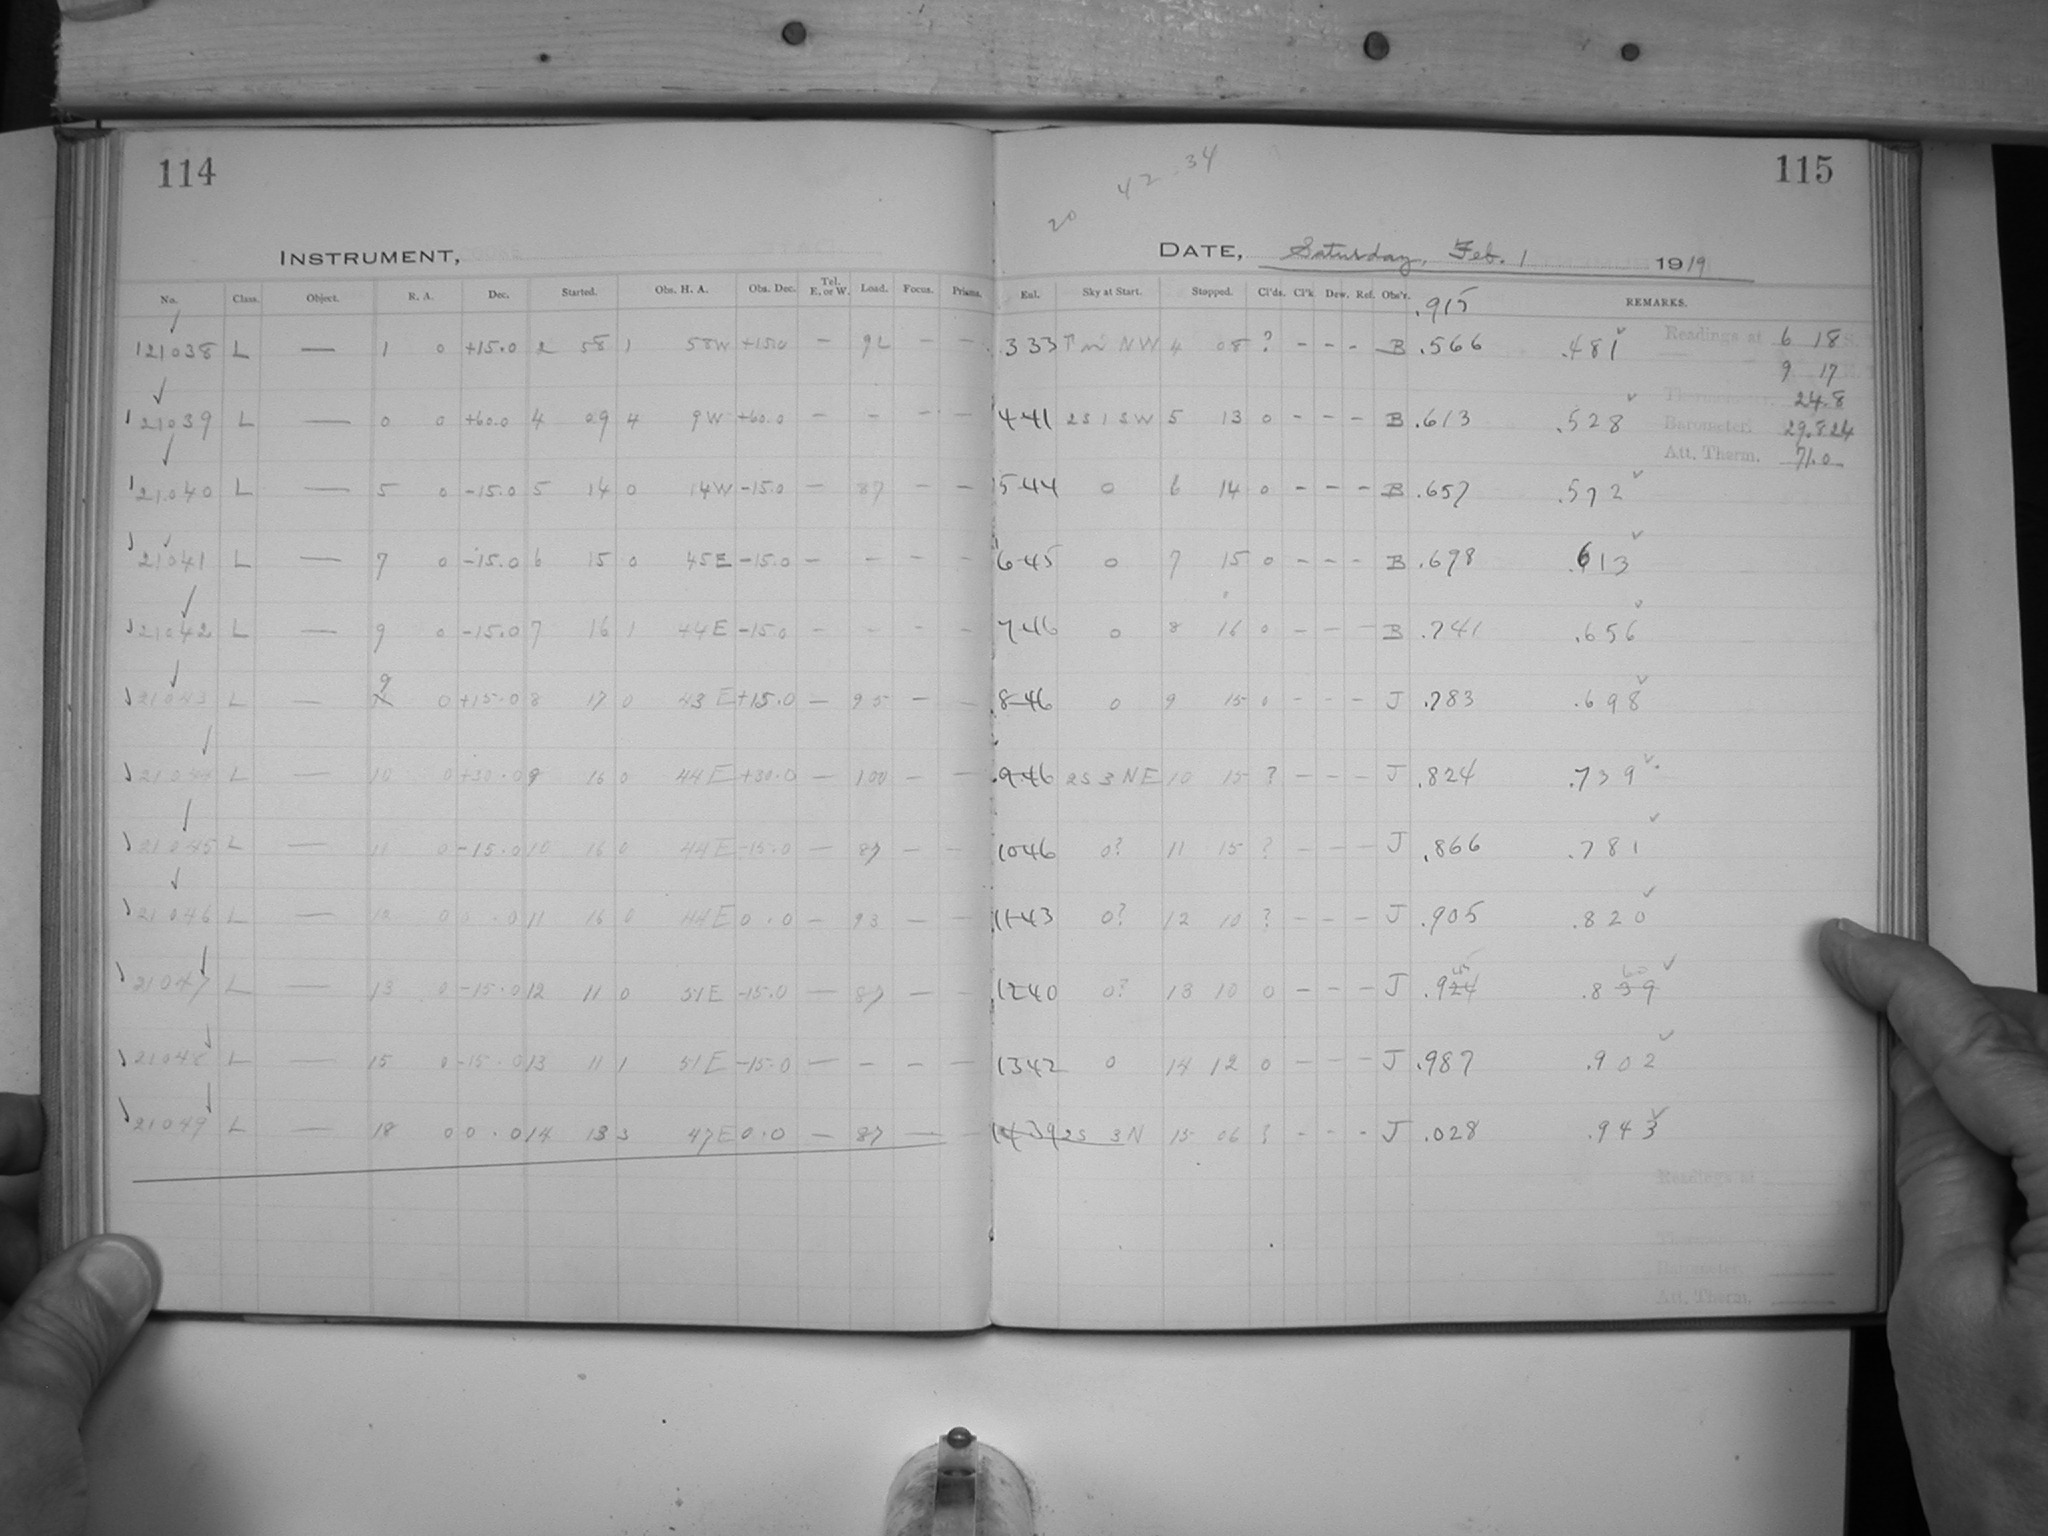 114
115
42 - 34
20
INSTRUMENT,
DATE, Saturday, Feb. 1 1919
No. Class. Object. R. A. Dec. Started. Obs. H. A. Obs. Dec. Tel. E. or W. Load. Focus. Prisms. Enl. Sky at Start. Stopped. Cl'ds. Cl'k Dew. Ref. Obs'r. REMARKS.
.915
121038 L — 1 0 +15.0 2 58 1 58W +15.0 — 92 — — 333 NW 4 08 ? - - - B .566 .481 Readings at 6 18
9 17
24.8
21039 L — 0 0 +60.0 4 09 4 9W +60.0 — - — — 441 2S 1 SW 5 13 0 - - - B .613 .528 Barometer. 29.824
Att. Therm. 71.0
21040 L — 5 0 -15.0 5 14 0 14W -15.0 — 87 — — 544 0 6 14 0 - - - B .657 .572
21041 L — 7 0 -15.0 6 15 0 45E -15.0 — - - - 645 0 7 15 0 - - - B .698 .613
21042 L — 9 0 -15.0 7 16 1 44E -15.0 - - - - 746 0 8 16 0 - - - B .741 .656
21043 L — 9 0 +15.0 8 17 0 43E +15.0 — 95 — — 846 0 9 15 0 - - - J .783 .698
21044 L — 10 0 +30.0 9 16 0 44E +30.0 — 100 — — 946 2S 3 NE 10 15 ? - - - J .824 .739
21045 L — 11 0 -15.0 10 16 0 44E -15.0 — 87 — — 1046 0? 11 15 ? - - - J .866 .781
21046 L — 12 0 0.0 11 16 0 44E 0.0 — 93 — — 1143 0? 12 10 ? - - - J .905 .820
21047 L — 13 0 -15.0 12 11 0 51E -15.0 — 87 — — 1240 0? 13 10 0 - - - J .924 .839
21048 L — 15 0 -15.0 13 11 1 51E -15.0 — - - - 1342 0 14 12 0 - - - J .987 .902
21049 L — 18 0 0.0 14 13 3 47E 0.0 — 87 — — 1439 2S 3N 15 06 ? - - - J .028 .943
Readings at
Barometer.
Att. Therm.